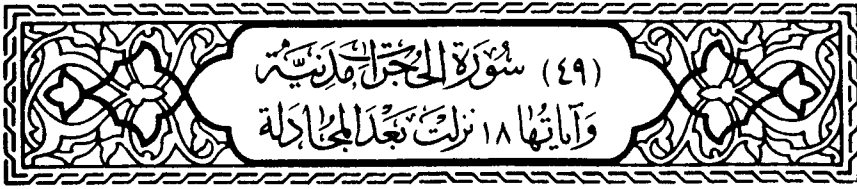 (٤٩) سُورَةُ الحُجُرَاتِ مَدَنِيَّة
وَآيَاتُهَا ١٨ نَزَلَتْ بَعْدَ المُجَادَلَة